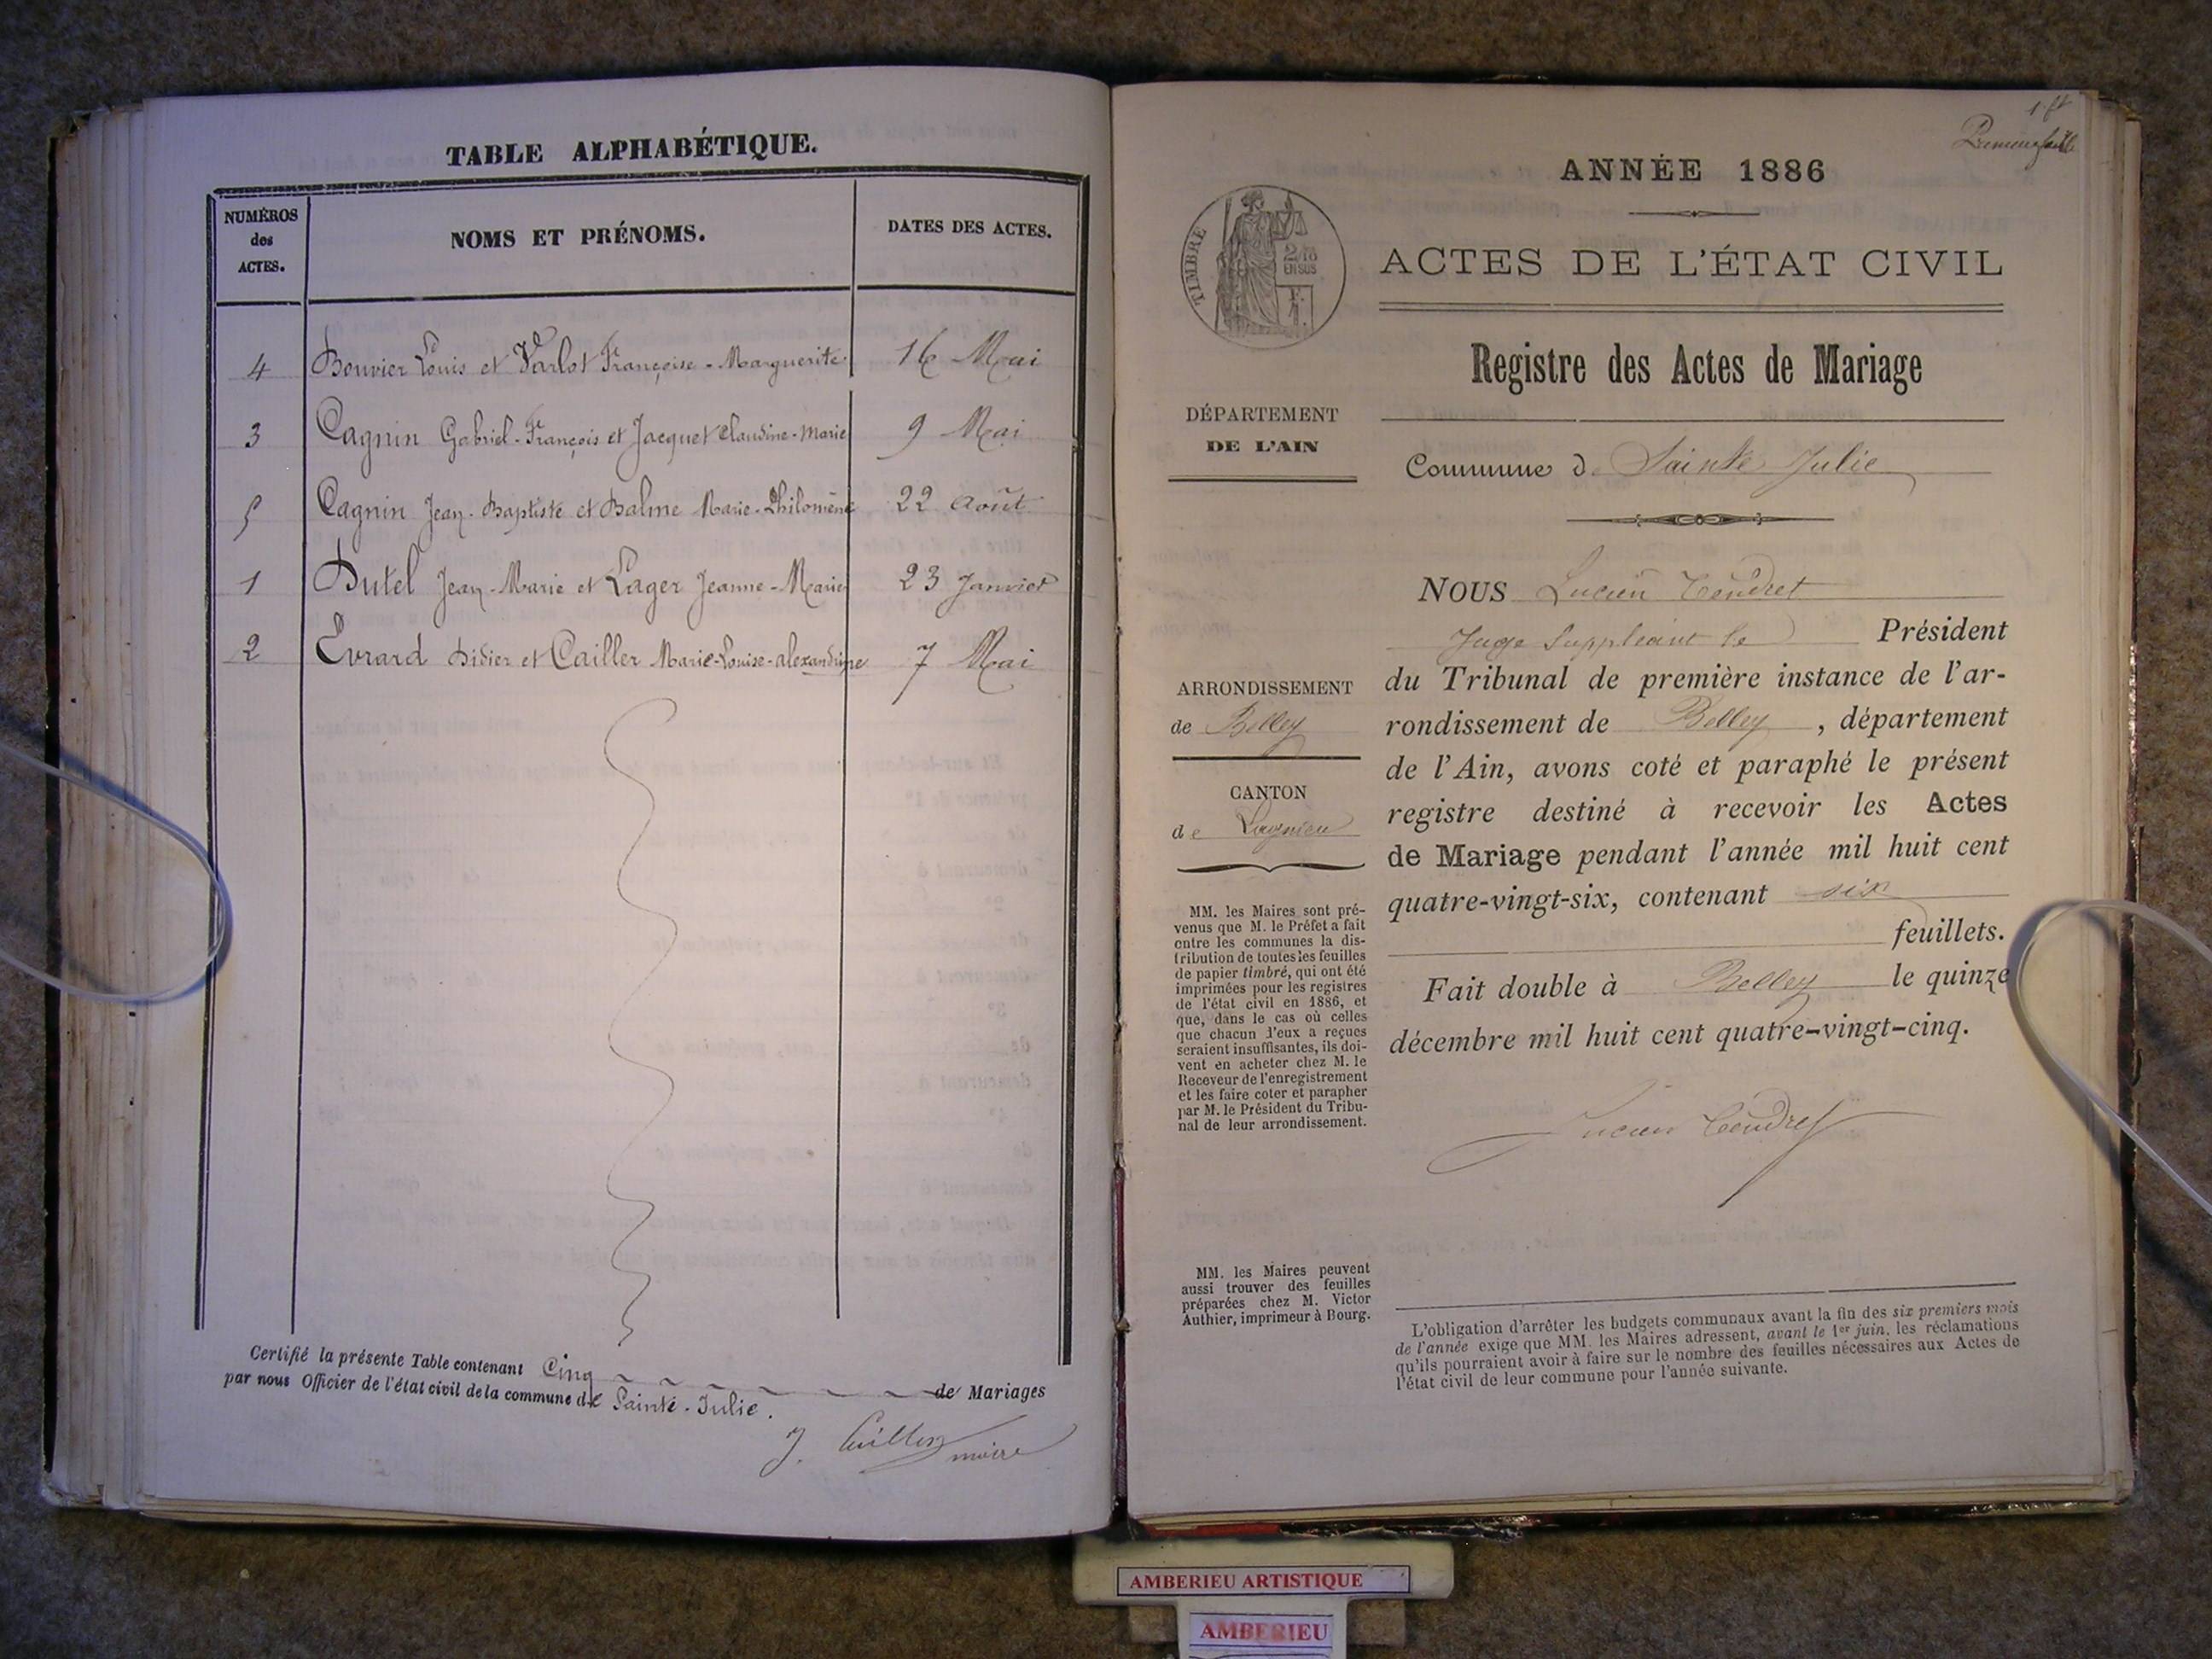 TABLE ALPHABÉTIQUE.
NUMÉROS
des
ACTES.
NOMS ET PRÉNOMS.
DATES DES ACTES.
4 Bouvier Louis et Varlot Françoise-Marguerite 16 Mai
3 Cagnin Gabriel-François et Jacquet Claudine-Marie 9 Mai
5 Cagnin Jean-Baptiste et Balme Marie-Philomène 22 Août
1 Dutel Jean-Marie et Lager Jeanne-Marie 23 Janvier
2 Evrard Didier et Cailler Marie-Louise-alexandrine 7 Mai
Certifié la présente Table contenant Cinq de Mariages
par nous Officier de l'état civil de la commune de Sainte-Julie.
maire
1er ft
ANNÉE 1886
TIMBRE
2/10
EN SUS
ACTES DE L'ÉTAT CIVIL
Registre des Actes de Mariage
DÉPARTEMENT
DE L'AIN
Commune de Sainte Julie
NOUS Lucien Tendret
Juge Suppléant le Président
du Tribunal de première instance de l'ar-
rondissement de Belley, département
de l'Ain, avons coté et paraphé le présent
registre destiné à recevoir les Actes
de Mariage pendant l'année mil huit cent
quatre-vingt-six, contenant six
feuillets.
Fait double à Belley le quinze
décembre mil huit cent quatre-vingt-cinq.
Lucien Tendret
ARRONDISSEMENT
de Belley
CANTON
de Lagnieu
MM. les Maires sont pré-
venus que M. le Préfet a fait
entre les communes la dis-
tribution de toutes les feuilles
de papier timbré, qui ont été
imprimées pour les registres
de l'état civil en 1886, et
que, dans le cas où celles
que chacun d'eux a reçues
seraient insuffisantes, ils doi-
vent en acheter chez M. le
Receveur de l'enregistrement
et les faire coter et parapher
par M. le Président du Tribu-
nal de leur arrondissement.
MM. les Maires peuvent
aussi trouver des feuilles
préparées chez M. Victor
Authier, imprimeur à Bourg.
L'obligation d'arrêter les budgets communaux avant la fin des six premiers mois
de l'année exige que MM. les Maires adressent, avant le 1er juin, les réclamations
qu'ils pourraient avoir à faire sur le nombre des feuilles nécessaires aux Actes de
l'état civil de leur commune pour l'année suivante.
AMBERIEU ARTISTIQUE
AMBERIEU